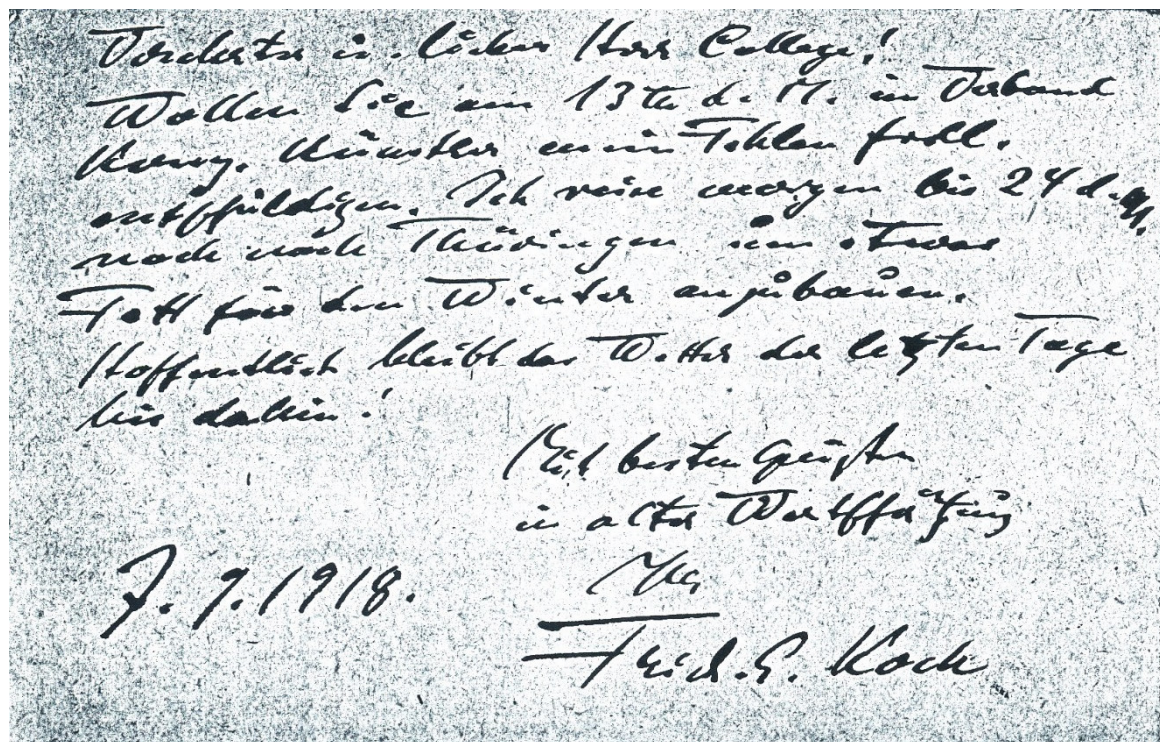 Verehrter u. lieber Herr College!
Wollen Sie am 13ten d. M. im Verband
Konz. Künstler mein Fehlen frdl.
entschuldigen. Ich reise morgen bis 24 d. M.
noch nach Thüringen um etwas
Fett für den Winter anzubauen.
Hoffentlich bleibt das Wetter der letzten Tage
bis dahin!
Mit besten Grüßen
in alter Wertschätzung
Ihr
7. 9. 1918.
Friedr. E. Koch